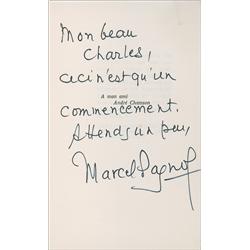 Mon beau
Charles,
ceci n'est qu'un
A mon ami
André Chamson
commencement.
Attends un peu,
Marcel Pagnol